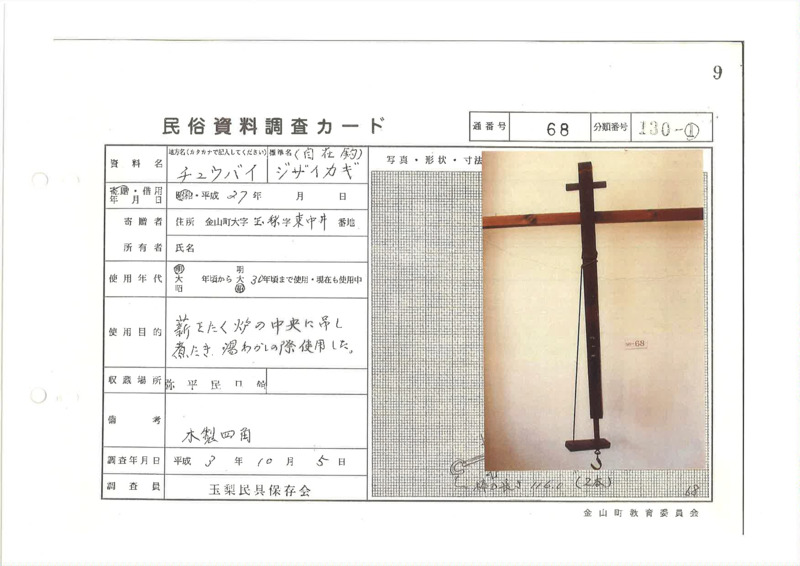 9
民俗資料調査カード
通番号 68 分類番号 130-①
資料名 地方名(カタカナで記入してください) チュウバイ 標準名(自在鈎) ジザイカギ
写真・形状・寸法
寄贈・借用年月日 昭和・平成 27年 月 日
寄贈者 住所 金山町大字玉梨字東中井 番地
所有者 氏名
使用年代 明大昭 年頃から 明大昭 30年頃まで使用・現在も使用中
使用目的 薪をたく炉の中央に吊し
煮たき、湯わかしの際使用した。
収蔵場所 弥平民具館
備考 木製四角
調査年月日 平成 3年 10月 5日
調査員 玉梨民具保存会
116.0
68
68
金山町教育委員会